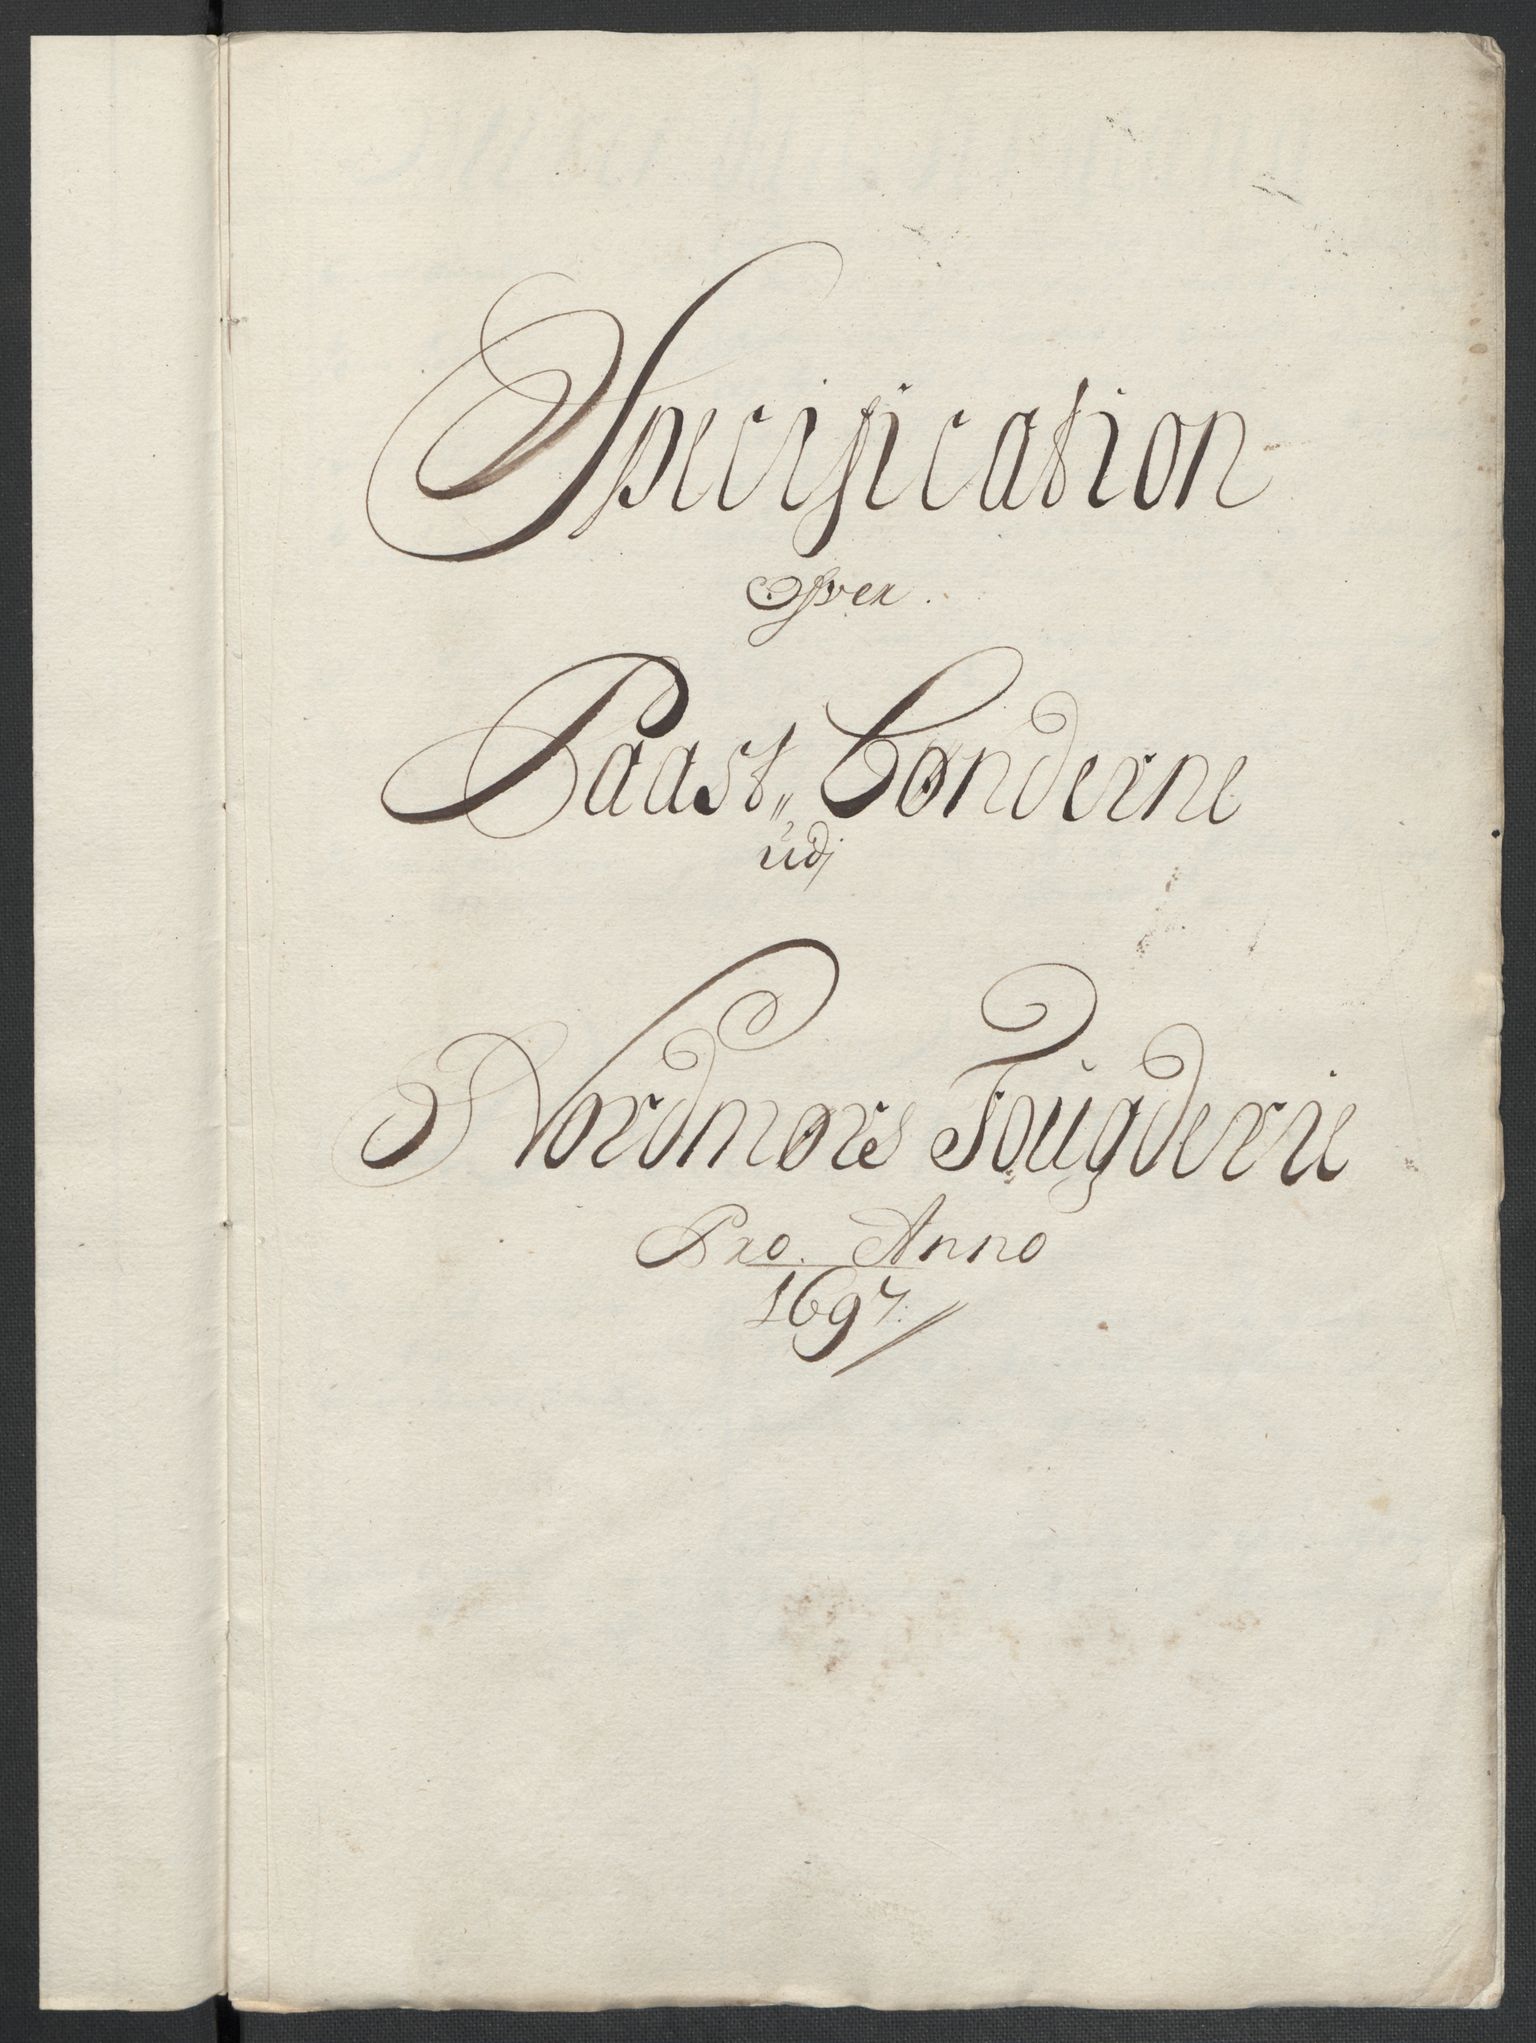 Specification
Ofver.
Paast,, Bønderne
udj
Nordmørs Fougderie
Pro. Anno
1697.